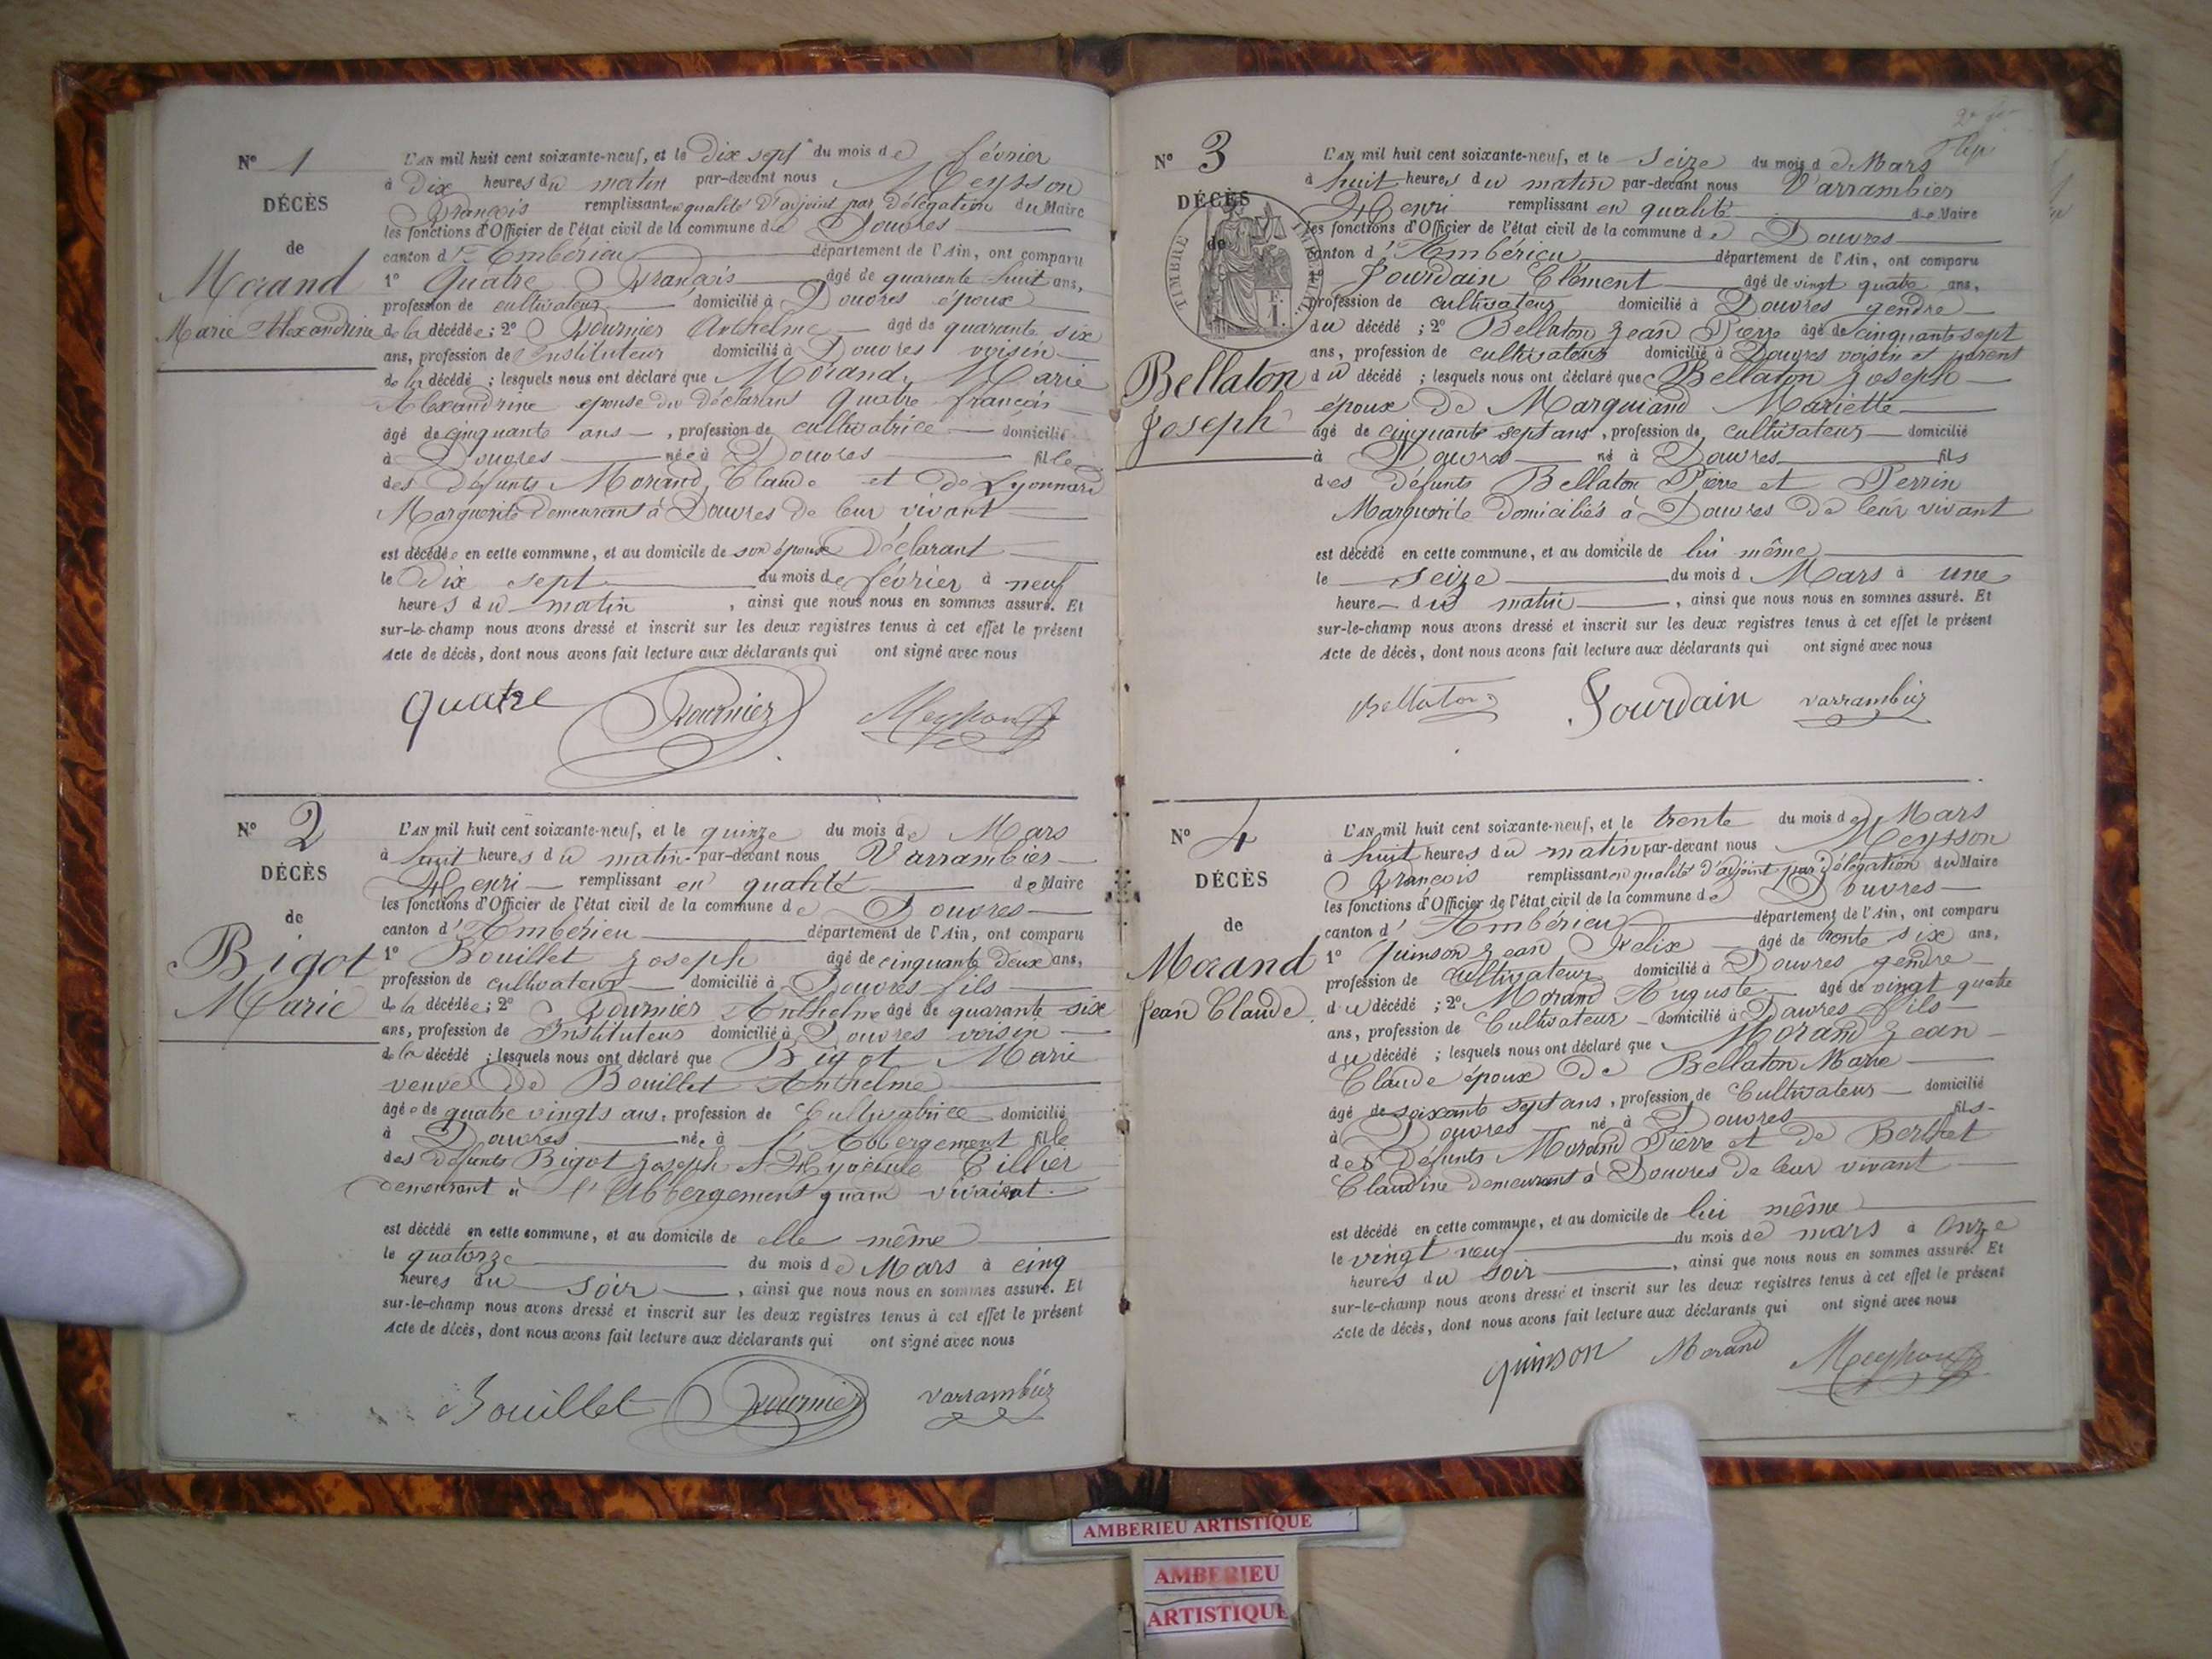 N° 1
DÉCÈS
de
Morand
Marie Alexandrine
L'AN mil huit cent soixante-neuf, et le Dix sept du mois de février
à Dix heures du matin par-devant nous Meysson
François remplissant en qualité d'adjoint par Délégation du Maire
les fonctions d'Officier de l'état civil de la commune de Douvres
canton d'Ambérieu département de l'Ain, ont comparu
1° Quatre François âgé de quarante huit ans,
profession de cultivateur domicilié à Douvres époux
de la décédée ; 2° Fournier Anthelme âgé de quarante six
ans, profession de Instituteur domicilié à Douvres voisin
de la décédé ; lesquels nous ont déclaré que Morand Marie
Alexandrine épouse du déclarant Quatre françois
âgé de cinquante ans, profession de cultivatrice domicilié
à Douvres née à Douvres fille
des défunts Morand Claude et de Lyonnard
Marguerite demeurant à Douvres de leur vivant
est décédée en cette commune, et au domicile de son épouse Déclarant
le Dix sept du mois de février à neuf
heures du matin, ainsi que nous nous en sommes assuré. Et
sur-le-champ nous avons dressé et inscrit sur les deux registres tenus à cet effet le présent
Acte de décès, dont nous avons fait lecture aux déclarants qui ont signé avec nous
Quatre Fournier Meysson
N° 2
DÉCÈS
de
Bigot
Marie
L'AN mil huit cent soixante-neuf, et le quinze du mois de Mars
à huit heures du matin par-devant nous Varrambier
Henri remplissant en qualité de Maire
les fonctions d'Officier de l'état civil de la commune de Douvres
canton d'Ambérieu département de l'Ain, ont comparu
1° Bouillet Joseph âgé de cinquante deux ans,
profession de cultivateur domicilié à Douvres fils
de la décédée ; 2° Fournier Anthelme âgé de quarante six
ans, profession de Instituteur domicilié à Douvres voisin
de la décédé ; lesquels nous ont déclaré que Bigot Marie
veuve de Bouillet Anthelme
âgée de quatre vingts ans, profession de Cultivatrice domicilié
à Douvres née à l'Abbergement fille
des défunts Bigot Joseph et Hyacinte Tillier
demeurant à l'Abbergement quand vivaient
est décédé en cette commune, et au domicile de elle même
le quatorze du mois de Mars à cinq
heures du soir, ainsi que nous nous en sommes assuré. Et
sur-le-champ nous avons dressé et inscrit sur les deux registres tenus à cet effet le présent
Acte de décès, dont nous avons fait lecture aux déclarants qui ont signé avec nous
Bouillet Fournier Varrambier
N° 3
DÉCÈS
de
TIMBRE IMPÉRIAL
Bellaton
Joseph
L'AN mil huit cent soixante-neuf, et le Seize du mois de Mars
à huit heures du matin par-devant nous Varrambier
Henri remplissant en qualité de Maire
les fonctions d'Officier de l'état civil de la commune de Douvres
canton d'Ambérieu département de l'Ain, ont comparu
Jourdain Clément âgé de vingt quatre ans,
profession de cultivateur domicilié à Douvres gendre
du décédé ; 2° Bellaton Jean Pierre âgé de cinquante sept
ans, profession de cultivateur domicilié à Douvres voisin et parent
du décédé ; lesquels nous ont déclaré que Bellaton Joseph
époux de Marquiand Mariette
âgé de cinquante sept ans, profession de cultivateur domicilié
à Douvres né à Douvres fils
des défunts Bellaton Pierre et Perrin
Marguerite domiciliés à Douvres de leur vivant
est décédé en cette commune, et au domicile de lui même
le Seize du mois d Mars à une
heure du matin, ainsi que nous nous en sommes assuré. Et
sur-le-champ nous avons dressé et inscrit sur les deux registres tenus à cet effet le présent
Acte de décès, dont nous avons fait lecture aux déclarants qui ont signé avec nous
Bellaton Jourdain Varrambier
N° 4
DÉCÈS
de
Morand
Jean Claude
L'AN mil huit cent soixante-neuf, et le trente du mois de Mars
à huit heures du matin par-devant nous Meysson
François remplissant en qualité d'adjoint par Délégation du Maire
les fonctions d'Officier de l'état civil de la commune de Douvres
canton d'Ambérieu département de l'Ain, ont comparu
1° Quinson Jean Félix âgé de trente six ans,
profession de cultivateur domicilié à Douvres gendre
du décédé ; 2° Morand Auguste âgé de vingt quatre
ans, profession de Cultivateur domicilié à Douvres fils
du décédé ; lesquels nous ont déclaré que Morand Jean
Claude époux de Bellaton Marie
âgé de soixante sept ans, profession de Cultivateur domicilié
à Douvres né à Douvres fils
des défunts Morand Pierre et de Berthet
Claudine demeurant à Douvres de leur vivant
est décédé en cette commune, et au domicile de lui même
le vingt neuf du mois de mars à onze
heures du soir, ainsi que nous nous en sommes assuré. Et
sur-le-champ nous avons dressé et inscrit sur les deux registres tenus à cet effet le présent
Acte de décès, dont nous avons fait lecture aux déclarants qui ont signé avec nous
Quinson Morand Meysson
AMBERIEU ARTISTIQUE
AMBERIEU
ARTISTIQUE